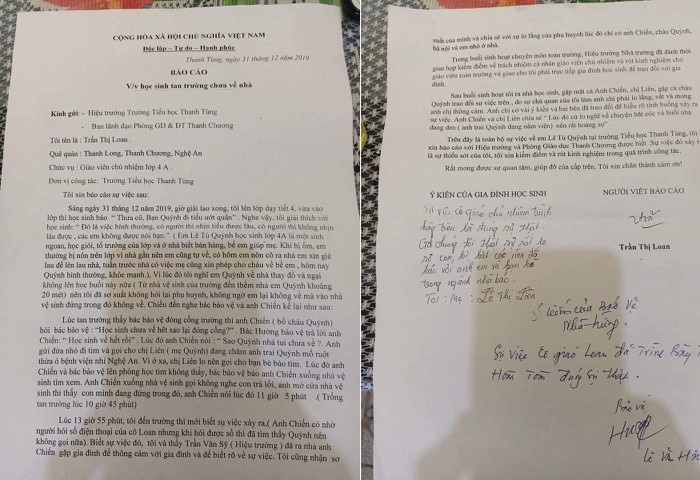 CỘNG HÒA XÃ HỘI CHỦ NGHĨA VIỆT NAM
Độc lập – Tự do – Hạnh phúc
Thanh Tùng, ngày 31 tháng 12 năm 2019
BÁO CÁO
V/v học sinh tan trường chưa về nhà
Kính gửi: - Hiệu trưởng Trường Tiểu học Thanh Tùng
- Ban lãnh đạo Phòng GD & ĐT Thanh Chương
Tôi tên là : Trần Thị Loan .
Quê quán : Thanh Long, Thanh Chương, Nghệ An
Chức vụ : Giáo viên chủ nhiệm lớp 4 A .
Đơn vị công tác: Trường Tiểu học Thanh Tùng
Tôi xin báo cáo sự việc sau:
Sáng ngày 31 tháng 12 năm 2019, giờ giải lao xong, tôi lên lớp dạy tiết 4, vừa vào
lớp thì học sinh báo " Thưa cô, Bạn Quỳnh đi tiểu ướt quần" . Nghe vậy, tôi giải thích với
học sinh: " Đó là việc bình thường, có người thì nhịn tiểu được lâu, có người thì không nhịn
lâu được , các em không được nói bạn." ( Em Lê Tú Quỳnh học sinh lớp 4A là một sinh
ngoan, học giỏi, tổ trưởng của lớp và ở nhà biết bán hàng, bế em giúp mẹ. Khi bị ốm, em
thường bị nôn trên lớp vì nhà gần nên em cũng tự về, có hôm em nôn cô ra nhà em xin giẻ
lau để lên lau nhà, tuần trước nhà có việc mẹ cũng xin phép cho cháu về bế em , hôm nay
Quỳnh bình thường, khỏe mạnh.), Vì lúc đó tôi nghĩ em Quỳnh về nhà thay đồ và ngại
không lên học buổi này nữa ( Từ nhà vệ sinh của trường đến thềm nhà em Quỳnh khoảng
20 mét) nên tôi đã sơ suất không hỏi lại phụ huynh, không ngờ em lại không về mà vào nhà
vệ sinh đứng trong đó không về. Chiều đến nghe bác bảo vệ và anh Chiến kể lại như sau:
Lúc tan trường thấy bác bảo vệ đóng cổng trường thì anh Chiến ( bố cháu Quỳnh)
hỏi bác bảo vệ : "Học sinh chưa về hết sao lại đóng cổng?" . Bác Hường bảo vệ trả lời anh
Chiến: " Học sinh về hết rồi" . Lúc đó anh Chiến nói : " Sao Quỳnh nhà tui chưa về ?. Anh
gửi đứa nhỏ đi tìm và gọi cho chị Liên ( mẹ Quỳnh) đang chăm anh trai Quỳnh mổ ruột
thừa ở bệnh viện nhi Nghệ An. Vì ở xa, chị Liên lo nên gọi cho bạn bè báo tìm. Lúc đó anh
Chiến và bác bảo vệ lên phòng học tìm không thấy, bác bảo vệ bảo anh Chiến xuống nhà vệ
sinh tìm xem. Anh Chiến xuống nhà vệ sinh gọi không nghe con trả lời, anh mở cửa nhà vệ
sinh thì thấy con mình đang đứng trong đó, anh Chiến nói lúc đó 11 giờ 5 phút .( Trống
tan trường lúc 10 giờ 45 phút)
Lúc 13 giờ 55 phút, tôi đến trường thì mới biết sự việc xảy ra,( Anh Chiến có nhờ
người hỏi số điện thoại của cô Loan nhưng khi hỏi được số thì đã tìm thấy Quỳnh nên
không gọi nữa). Biết sự việc đó, tôi và thầy Trần Văn Sỹ ( Hiệu trưởng ) đã ra nhà anh
Chiến gặp gia đình để thông cảm với gia đình và để biết rõ về sự việc. Tôi cũng nhận sơ
suất của mình và chia sẻ với sự lo lắng của phụ huynh lúc đó chỉ có anh Chiến, Quỳnh,
bà nội và em nhỏ ở nhà.
Trong buổi sinh hoạt chuyên môn toàn trường, Hiệu trưởng Nhà trường đã dành thời
gian họp kiểm điểm về trách nhiệm cá nhân giáo viên chủ nhiệm và rút kinh nghiệm cho
giáo viên toàn trường và giao cho tôi phải trực tiếp gia đình học sinh để trao đổi với gia
đình.
Sau buổi sinh hoạt tôi ra nhà học sinh, gặp mặt cả Anh Chiến, chị Liên, gặp cả cháu
Quỳnh trao đổi sự việc trên , do sự chủ quan của tôi làm anh chị phải lo lắng, vất vả mong
anh chị thông cảm. Anh chị có vài ý kiến và hai bên đã trao đổi để hiểu rõ tình huống xảy ra
sự việc. Anh Chiến và chị Liên chia sẻ " Lúc đó cứ lo nghĩ về chuyện bắt cóc và buổi nhà
đang đen ( anh trai Quỳnh đang nằm viện) nên rất hoảng sợ" .
Trên đây là toàn bộ sự việc về em Lê Tú Quỳnh tại trường Tiểu học Thanh Tùng, tôi
xin báo cáo với Hiệu trưởng và Phòng Giáo dục Thanh Chương được biết. Sự việc đó xảy r
là sự thiếu sót của tôi, tôi xin kiểm điểm và rút kinh nghiệm trong quá trình công tác.
Rất mong được sự quan tâm, giúp đỡ của cấp trên. Tôi xin chân thành cảm ơn!
Ý KIẾN CỦA GIA ĐÌNH HỌC SINH
NGƯỜI VIẾT BÁO CÁO
Sự việc cô giáo chủ nhiệm trình
bày trên là đúng sự thật
Trần Thị Loan
Tôi : Mẹ : Lê Thị Liên
Ý kiến của Bảo Vệ
Nhà trường .
Sự việc cô giáo Loan đã Trình Bày T
Hoàn Toàn đúng sự thật.
Bảo vệ